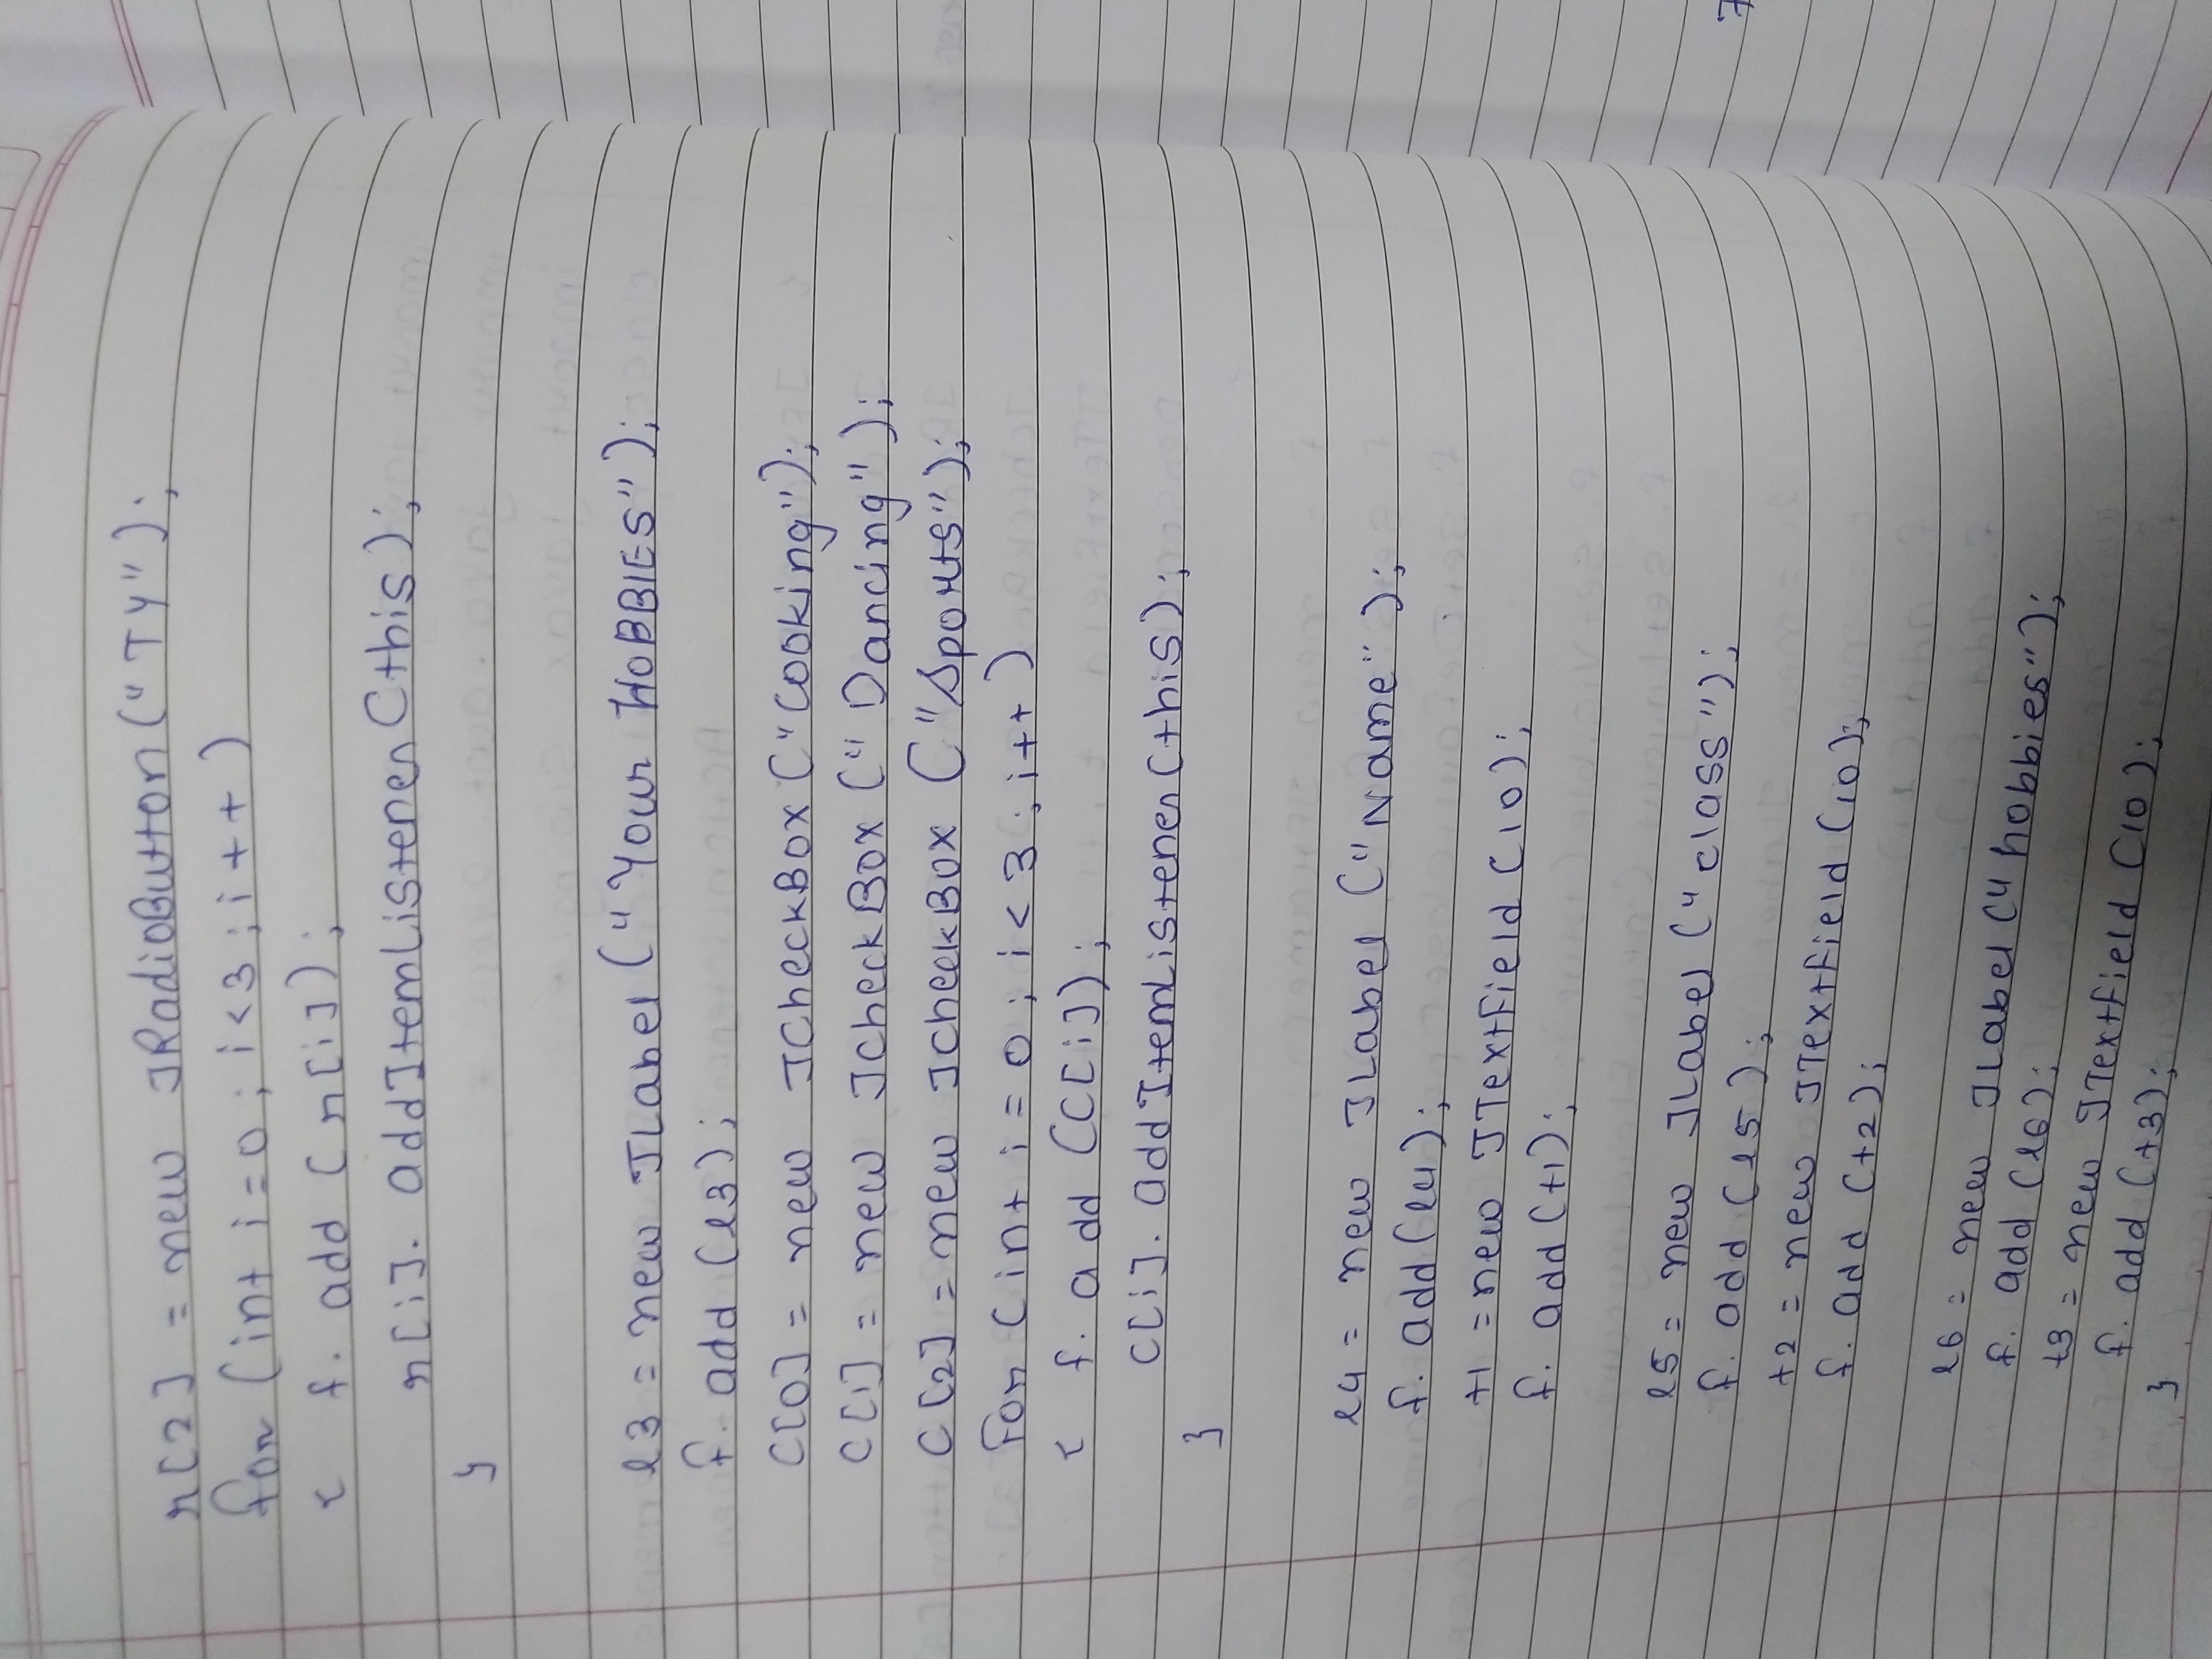 r[2] = new JRadioButton("TY");
for (int i=0; i<3; i++)
{ f. add (r[i]);
r[i]. addItemListener(this);
}
l3 = new JLabel("Your HOBBIES");
f. add (l3);
C[0] = new JCheckBox("Cooking");
C[1] = new JCheckBox("Dancing");
C[2] = new JCheckBox("Sports");
For (int i = 0; i<3; i++)
{ f. add (C[i]);
C[i]. addItemListener(this);
}
l4 = new JLabel ("Name");
f. add(l4);
t1 = new JTextField (10);
f. add (t1);
l5 = new JLabel ("class");
f. add (l5);
t2 = new JTextField (10);
f. add (t2);
l6 = new JLabel ("hobbies");
f. add (l6);
t3 = new JTextField (10);
f. add (t3);
}
7